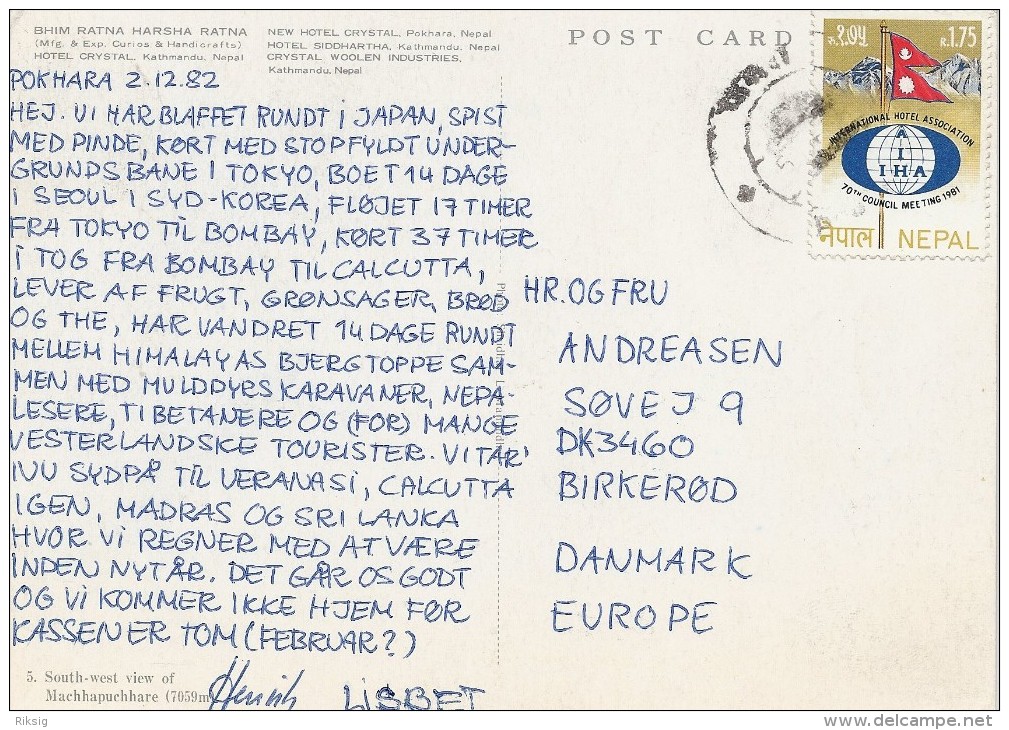 BHIM RATNA HARSHA RATNA
(Mfg. & Exp. Curios & Handicrafts)
HOTEL CRYSTAL, Kathmandu, Nepal
NEW HOTEL CRYSTAL, Pokhara, Nepal
HOTEL SIDDHARTHA, Kathmandu, Nepal
CRYSTAL WOOLEN INDUSTRIES,
Kathmandu, Nepal
POST CARD
रु. १.७५
R.1.75
INTERNATIONAL HOTEL ASSOCIATION
A
I
IHA
70TH COUNCIL MEETING 1981
नेपाल NEPAL
POKHARA 2.12.82
HEJ. VI HAR BLAFFET RUNDT I JAPAN, SPIST
MED PINDE, KØRT MED STOPFYLDT UNDER-
GRUNDSBANE I TOKYO, BOET 14 DAGE
I SEOUL I SYD-KOREA, FLØJET 17 TIMER
FRA TOKYO TIL BOMBAY, KØRT 37 TIMER
I TOG FRA BOMBAY TIL CALCUTTA,
LEVER AF FRUGT, GRØNSAGER, BRØD
OG THE, HAR VANDRET 14 DAGE RUNDT
MELLEM HIMALAYAS BJERGTOPPE SAM-
MEN MED MULDDYRS KARAVANER, NEPA-
LESERE, TIBETANERE OG (FOR) MANGE
VESTERLANDSKE TOURISTER. VI TAR'
NU SYDPÅ TIL VERANASI, CALCUTTA
IGEN, MADRAS OG SRI LANKA
HVOR VI REGNER MED AT VÆRE
INDEN NYTÅR. DET GÅR OS GODT
OG VI KOMMER IKKE HJEM FØR
KASSEN ER TOM (FEBRUAR?)
Henrik LISBET
HR. OG FRU
ANDREASEN
SØVEJ 9
DK3460
BIRKERØD
DANMARK
EUROPE
5. South-west view of
Machhapuchhare (7059m)
Riksig
www.delcampe.net